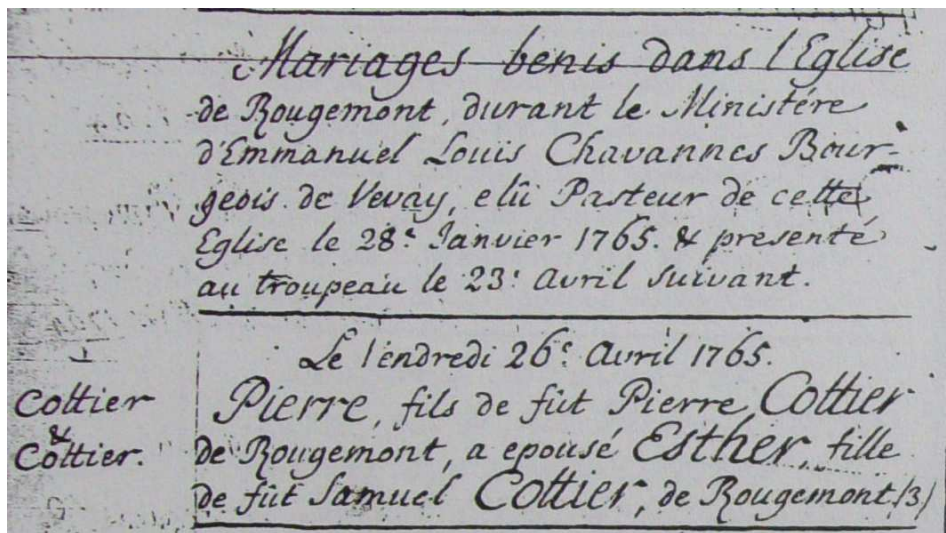 Mariages benis dans l'Eglise
de Rougemont, durant le Ministére
d'Emmanuel Louis Chavannes Bour-
geois de Vevay, elû Pasteur de cette
Eglise le 28e. Janvier 1765. & presenté
au troupeau le 23e. Avril suivant.
Le Vendredi 26e. Avril 1765.
Cottier
&
Cottier.
Pierre, fils de fût Pierre Cottier
de Rougemont, a epousé Esther, fille
de fût Samuel Cottier, de Rougemont /3/